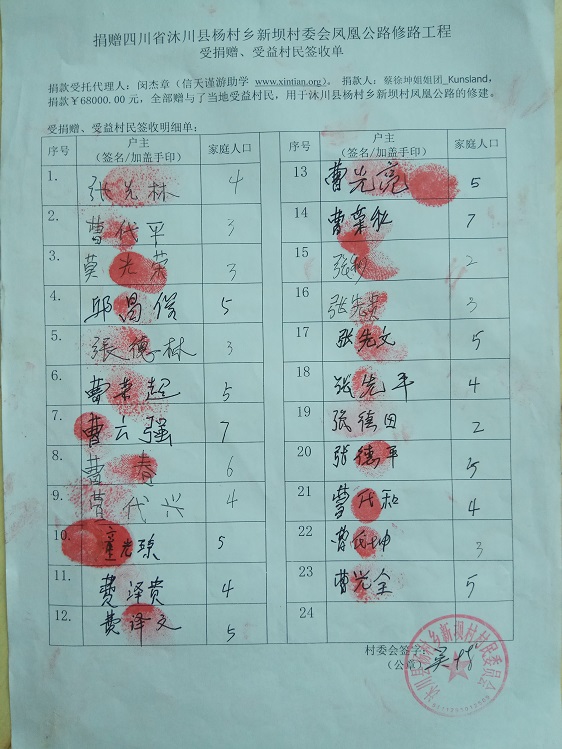 捐赠四川省沐川县杨村乡新坝村委会凤凰公路修路工程
受捐赠、受益村民签收单
捐款受托代理人：闵杰章（信天谨游助学 www.xintian.org）。 捐款人：蔡徐坤姐姐团_Kunsland，
捐款￥68000.00元，全部赠与了当地受益村民，用于沐川县杨村乡新坝村凤凰公路的修建。
受捐赠、受益村民签收明细单：
序号 户主（签名/加盖手印） 家庭人口
1. 张先林 4
2. 曹代平 3
3. 莫光荣 3
4. 邱昌俊 5
5. 張德林 3
6. 曹 超 5
7. 曹云强 7
8. 曹春 6
9. 曹代兴 4
10. 光琼 5
11. 费泽贵 4
12. 费泽文 5
序号 户主（签名/加盖手印） 家庭人口
13 曹光亮 5
14 曹 7
15 张 2
16 张先贵 3
17 张先文 5
18 张先平 4
19 张德田 2
20 张德平 5
21 曹代和 4
22 曹 坤 3
23 曹光全 5
24
村委会签字：吴
（公章）
沐川县杨村乡新坝村村民委员会